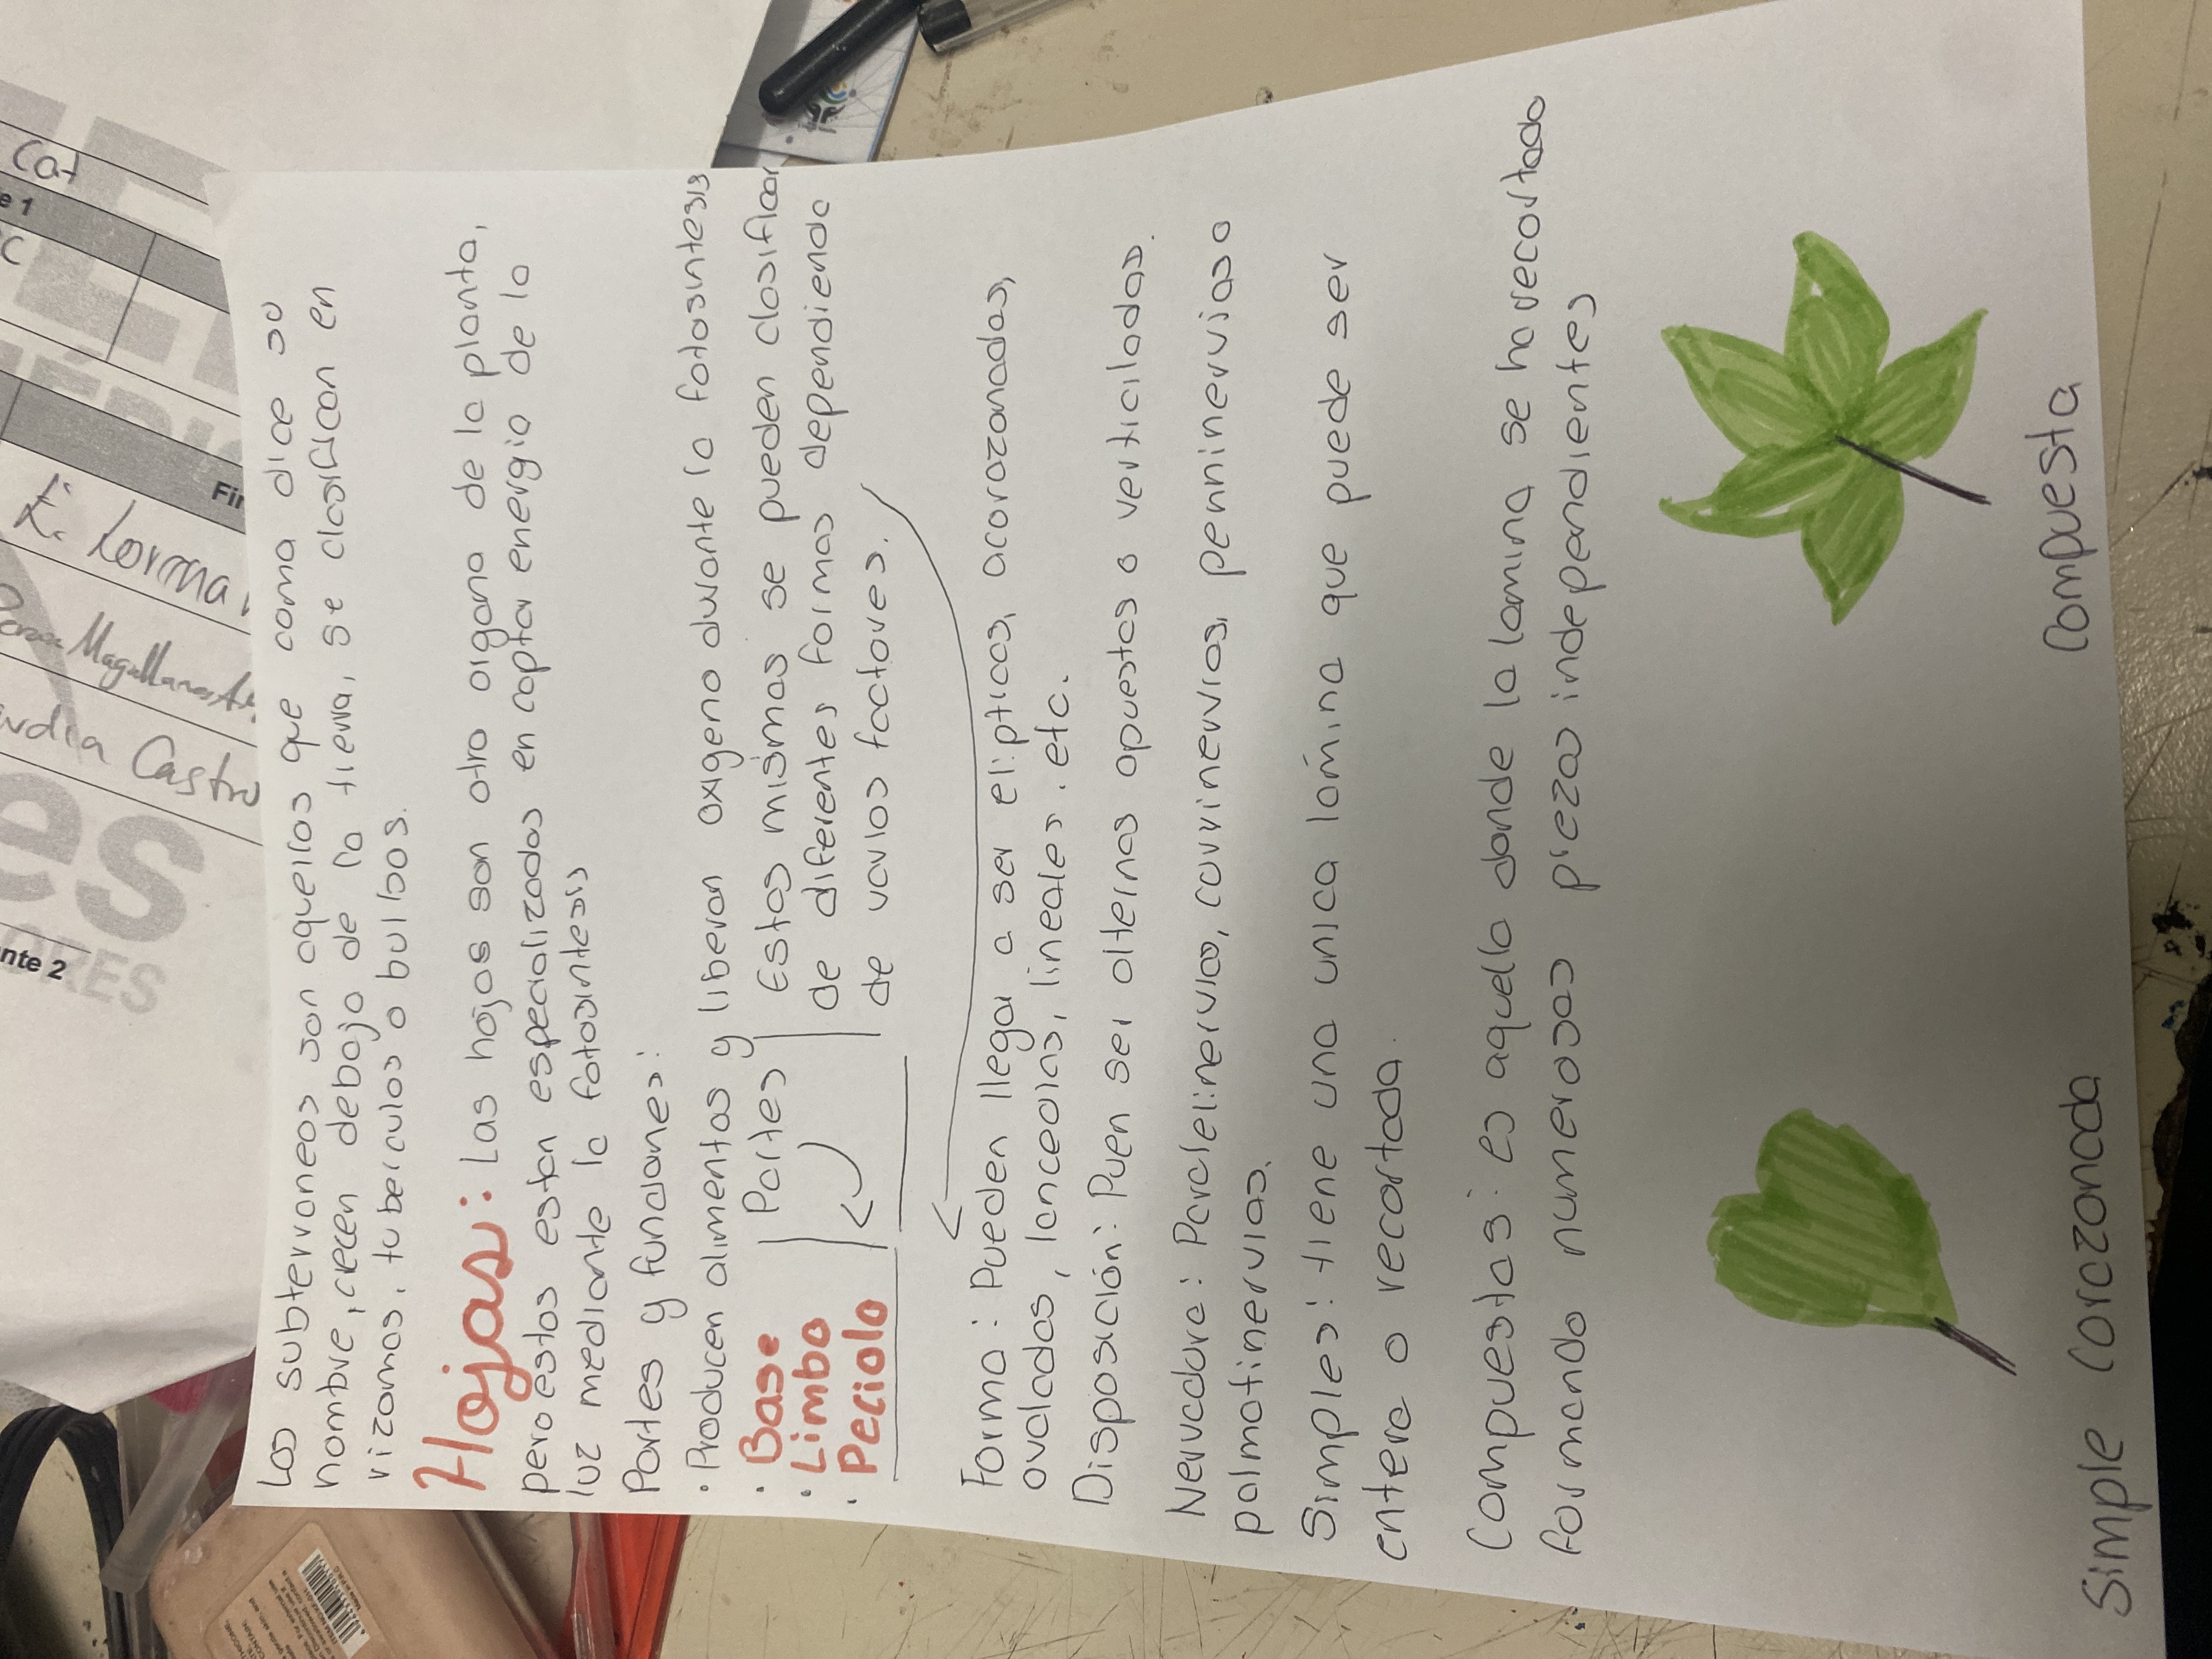 Los subterraneos son aquellos que como dice su
nombre, crecen debajo de la tierra, se clasifican en
rizomas, tuberculos o bulbos.
Hojas: Las hojas son otro organo de la planta,
pero estas estan especializadas en captar energia de la
luz mediante la fotosintesis
Partes y funciones:
· Producen alimentos y liberan oxigeno durante la fotosintesis
· Base
· Limbo
· Peciolo
Partes
Estas mismas se pueden clasificar
de diferentes formas dependiendo
de varios factores.
Forma: Pueden llegar a ser elipticas, acorazonadas,
ovaladas, lanceolas, lineales, etc.
Disposición: Puen ser alternas opuestas o verticiladas.
Nervadura: Paralelinervias, curvinervias, penninervias o
palmatinervias.
Simples: tiene una unica lámina que puede ser
entera o recortada.
Compuestas: es aquella donde la lamina se ha recortado
formando numerosas piezas independientes
Simple Corazonada
Compuesta
Cat
e 1
C
Fir
E. Lorma
Magallanes
Castro
es
nte 2